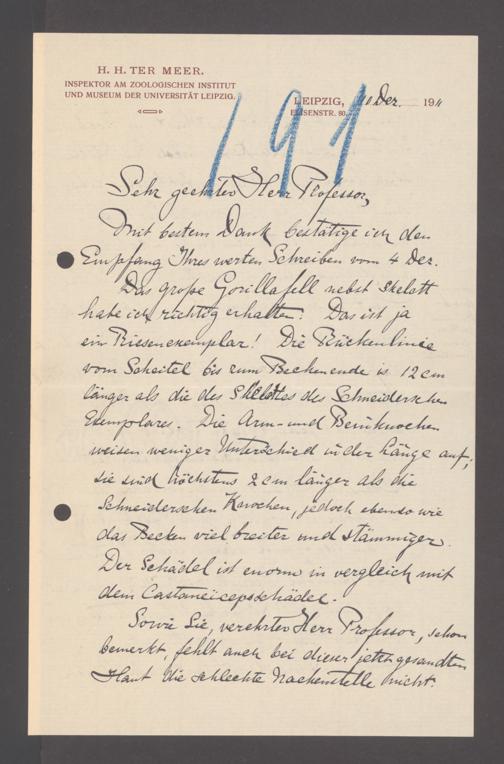 H. H. TER MEER.
INSPEKTOR AM ZOOLOGISCHEN INSTITUT
UND MUSEUM DER UNIVERSITÄT LEIPZIG.
LEIPZIG, 10 Dez. 1911
ELISENSTR. 80.
191
Sehr geehrter Herr Professor,
Mit bestem Dank bestätige ich den
Empfang Ihres werten Schreiben vom 4 Dez.
Das große Gorillafell nebst Skelett
habe ich richtig erhalten. Das ist ja
ein Riesenexemplar! Die Rückenlinie
vom Scheitel bis zum Beckenende is 12 cm
länger als die des Skelettes des Schneiderschen
Exemplares. Die Arm- und Beinknochen
weisen weniger Unterschied in der Länge auf;
sie sind höchstens 2 cm länger als die
Schneiderschen Knochen, jedoch ebenso wie
das Becken viel breiter und stämmiger.
Der Schädel ist enorm in vergleich mit
dem Castaneicepsschädel.
Sowie Sie, verehrter Herr Professor, schon
bemerkt, fehlt auch bei dieser jetzt gesandten
Haut die schlechte Nackenstelle nicht.